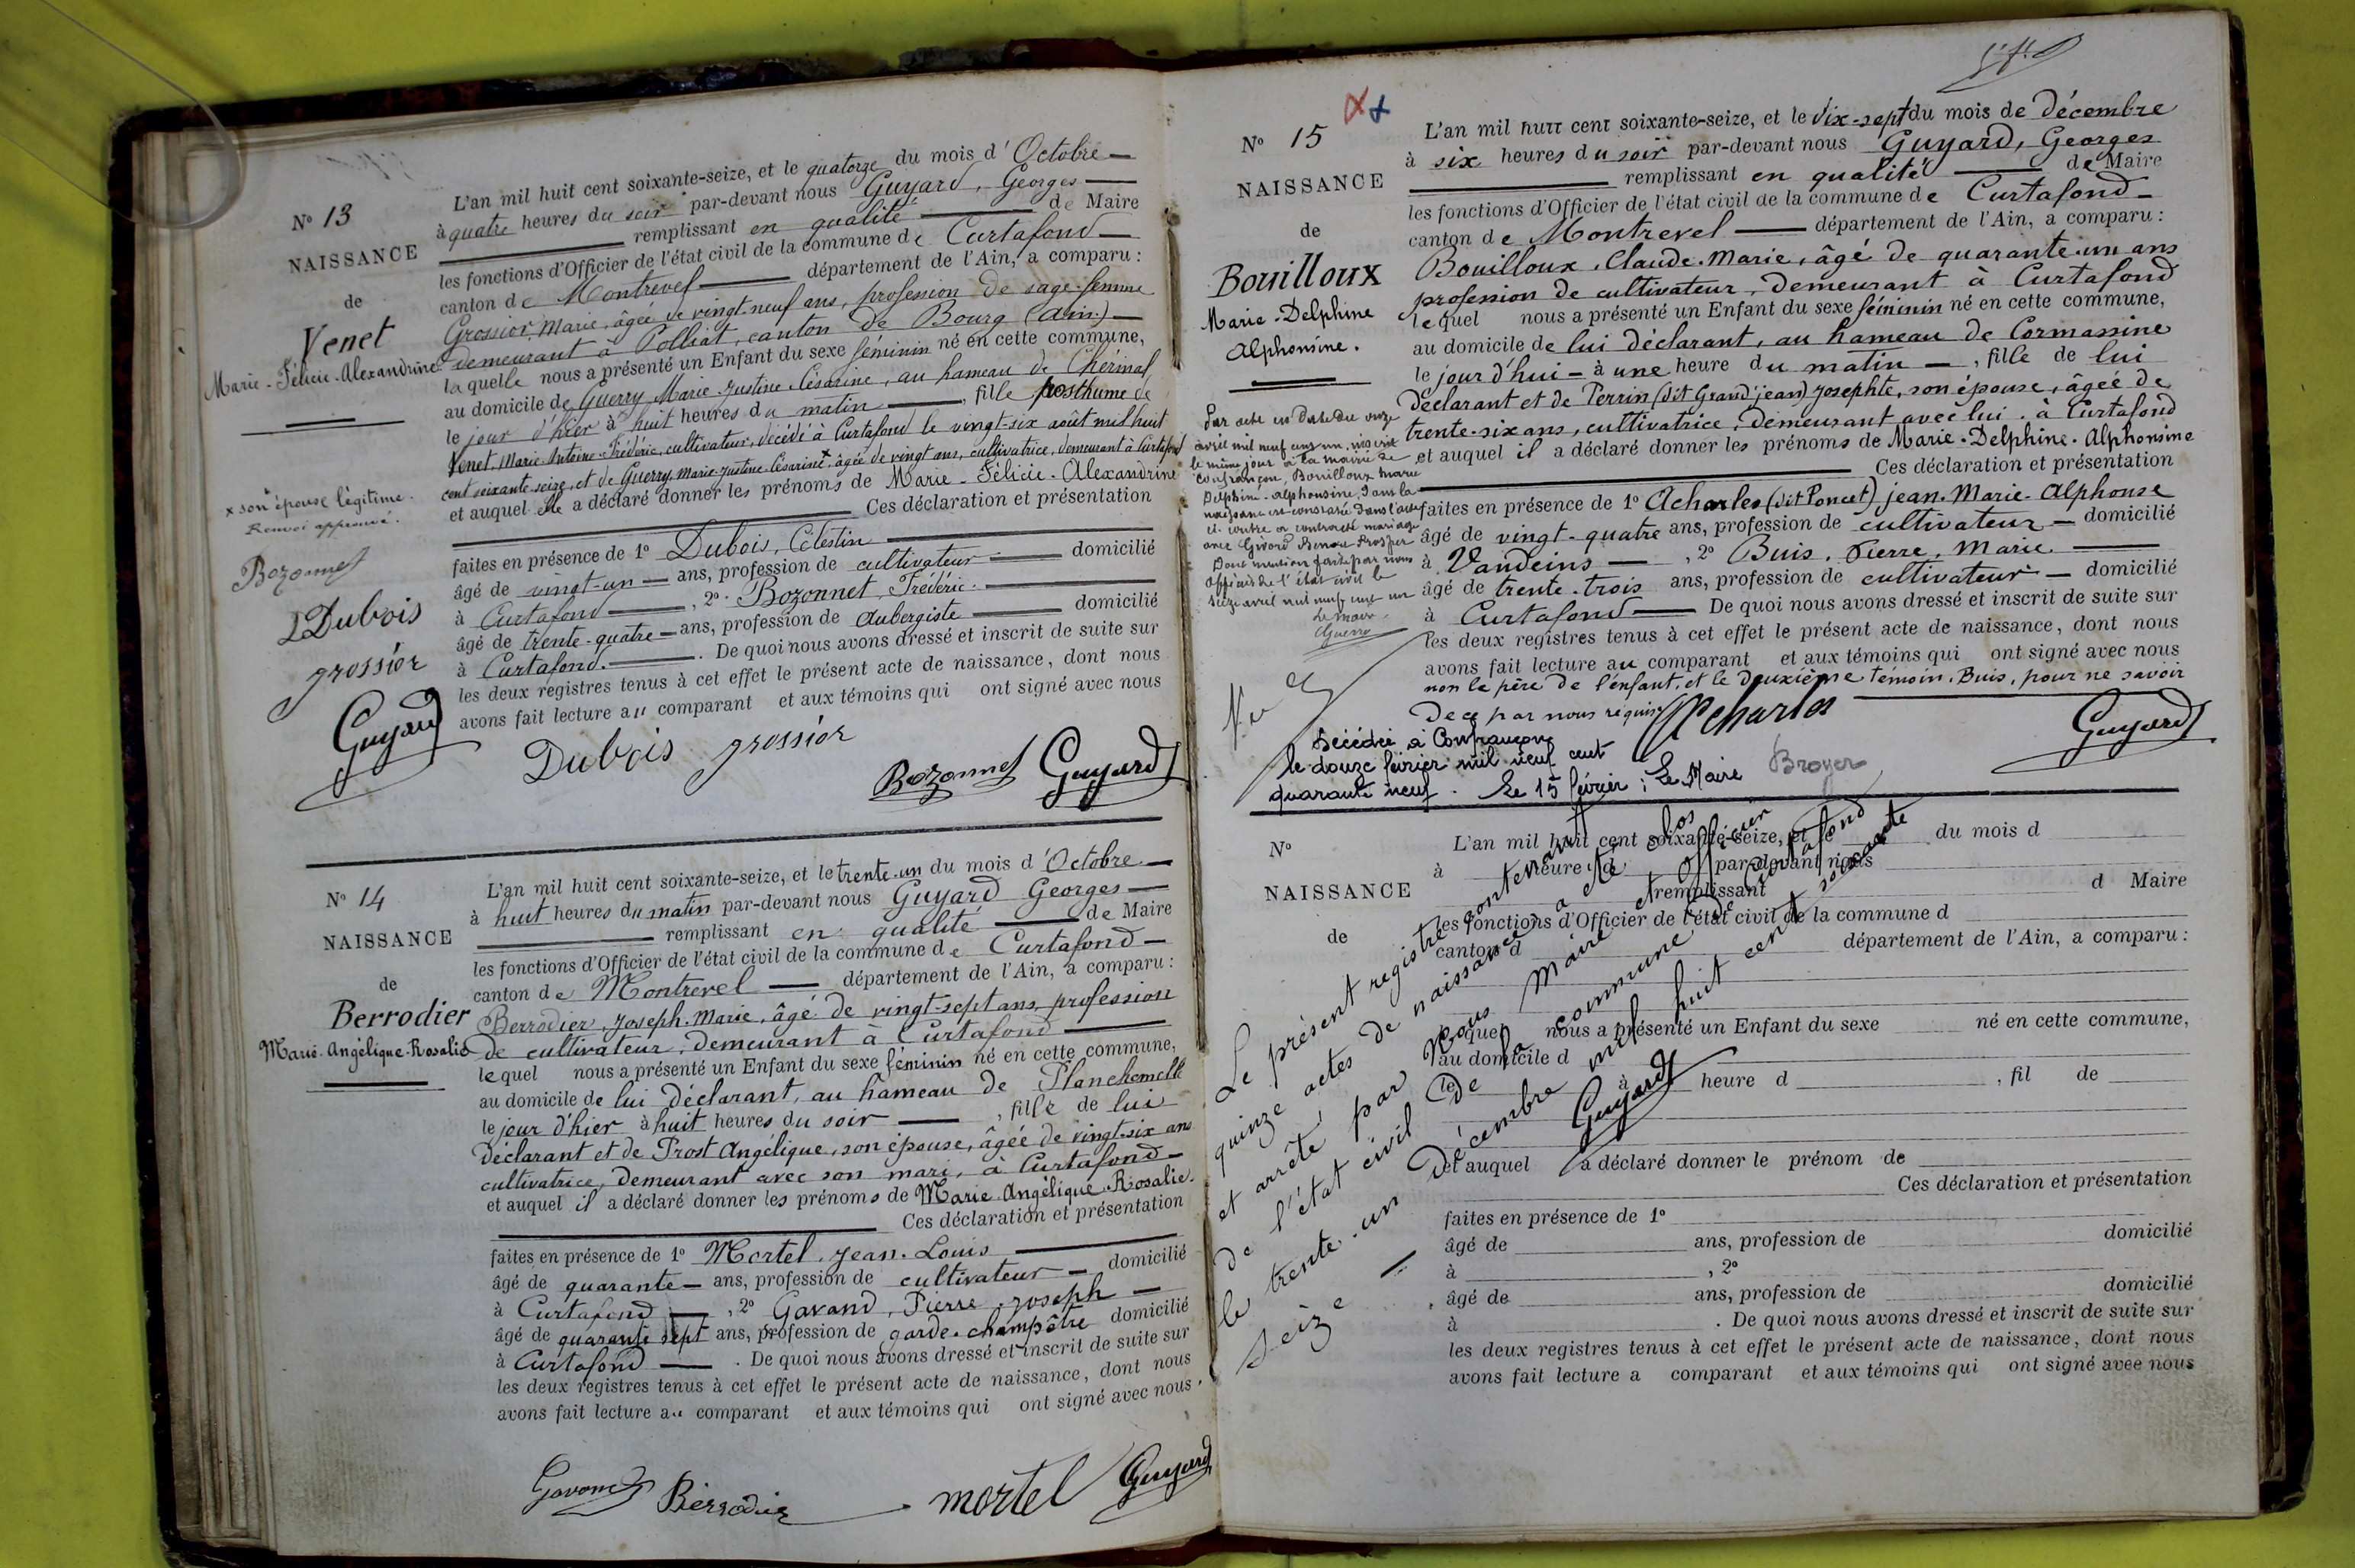 N° 13
NAISSANCE
de
Venet
Marie-Félicie-Alexandrine
x son épouse légitime.
Renvoi approuvé.
Bozonnet
Dubois
grossior
Guyard
L'an mil huit cent soixante-seize, et le quatorze du mois d'Octobre
à quatre heures du soir par-devant nous Guyard, Georges
remplissant en qualité de Maire
les fonctions d'Officier de l'état civil de la commune de Curtafond
canton de Montrevel département de l'Ain, a comparu :
Grossior, Marie, âgée de vingt-neuf ans, profession de sage-femme
demeurant à Polliat, canton de Bourg (Ain)
laquelle nous a présenté un Enfant du sexe féminin né en cette commune,
au domicile de Guerry Marie-Justine-Césarine, au hameau de Chérinal
le jour d'hier à huit heures du matin, fille posthume de
Venet, Marie-Antoine-Frédéric, cultivateur, décédé à Curtafond le vingt-six août mil huit
cent soixante-seize, et de Guerry Marie-Justine-Césarine x, âgée de vingt ans, cultivatrice, demeurant à Curtafond
et auquel elle a déclaré donner les prénoms de Marie-Félicie-Alexandrine
Ces déclaration et présentation
faites en présence de 1° Dubois, Célestin
âgé de vingt-un ans, profession de cultivateur domicilié
à Curtafond, 2° Bozonnet, Frédéric.
âgé de trente-quatre ans, profession de Aubergiste domicilié
à Curtafond. De quoi nous avons dressé et inscrit de suite sur
les deux registres tenus à cet effet le présent acte de naissance, dont nous
avons fait lecture au comparant et aux témoins qui ont signé avec nous
Dubois grossior
Bozonnet Guyard
N° 14
NAISSANCE
de
Berrodier
Marie-Angélique-Rosalie
L'an mil huit cent soixante-seize, et le trente-un du mois d'Octobre
à huit heures du matin par-devant nous Guyard Georges
remplissant en qualité de Maire
les fonctions d'Officier de l'état civil de la commune de Curtafond
canton de Montrevel département de l'Ain, a comparu :
Berrodier, Joseph-Marie, âgé de vingt-sept ans, profession
de cultivateur, demeurant à Curtafond
lequel nous a présenté un Enfant du sexe féminin né en cette commune,
au domicile de lui déclarant, au hameau de Planchemelle
le jour d'hier à huit heures du soir, fille de lui
déclarant et de Prost Angélique, son épouse, âgée de vingt-six ans
cultivatrice, demeurant avec son mari, à Curtafond
et auquel il a déclaré donner les prénoms de Marie-Angélique-Rosalie.
Ces déclaration et présentation
faites en présence de 1° Mortel, Jean-Louis
âgé de quarante ans, profession de cultivateur domicilié
à Curtafond, 2° Gavand, Pierre-Joseph
âgé de quarante sept ans, profession de garde-champêtre domicilié
à Curtafond. De quoi nous avons dressé et inscrit de suite sur
les deux registres tenus à cet effet le présent acte de naissance, dont nous
avons fait lecture au comparant et aux témoins qui ont signé avec nous.
Gavand Berrodier mortel Guyard
N° 15
NAISSANCE
de
Bouilloux
Marie-Delphine
Alphonsine.
Par acte en date du onze
avril mil neuf cent un, inscrit
le même jour à la mairie de
Confrançon, Bouilloux Marie
Delphine-Alphonsine, dans la
naissance est constatée dans l'acte
ci-contre a contracté mariage
avec Givord Benoit Prosper
Dont mention faite par nous
officier de l'état civil le
seize avril mil neuf cent un
Le Maire
Guerry
L'an mil huit cent soixante-seize, et le dix-sept du mois de Décembre
à six heures du soir par-devant nous Guyard, Georges
remplissant en qualité de Maire
les fonctions d'Officier de l'état civil de la commune de Curtafond
canton de Montrevel département de l'Ain, a comparu :
Bouilloux, Claude-Marie, âgé de quarante-un ans
profession de cultivateur, demeurant à Curtafond
lequel nous a présenté un Enfant du sexe féminin né en cette commune,
au domicile de lui déclarant, au hameau de Cormassine
le jour d'hui à une heure du matin, fille de lui
déclarant et de Perrin (dit Grand'jean) Josephte, son épouse, âgée de
trente-six ans, cultivatrice, demeurant avec lui, à Curtafond
et auquel il a déclaré donner les prénoms de Marie-Delphine-Alphonsine
Ces déclaration et présentation
faites en présence de 1° Acharles (dit Poncet) jean-Marie-Alphonse
âgé de vingt-quatre ans, profession de cultivateur domicilié
à Vandeins, 2° Buis, Pierre, Marie
âgé de trente-trois ans, profession de cultivateur domicilié
à Curtafond De quoi nous avons dressé et inscrit de suite sur
les deux registres tenus à cet effet le présent acte de naissance, dont nous
avons fait lecture au comparant et aux témoins qui ont signé avec nous
non le père de l'enfant, et le deuxième témoin, Buis, pour ne savoir
de ce par nous requis
Acharles
Guyard
Décédée à Confrançon
le douze février mil neuf cent
quarante neuf. Le 15 février : Le Maire Broyer
N°
NAISSANCE
de
L'an mil huit cent soixante-seize, et le du mois d
à heure d par-devant nous
remplissant d Maire
les fonctions d'Officier de l'état civil de la commune d
canton d département de l'Ain, a comparu :
lequel nous a présenté un Enfant du sexe né en cette commune,
au domicile d
le à heure d , fil de
et auquel a déclaré donner le prénom de
Ces déclaration et présentation
faites en présence de 1°
âgé de ans, profession de domicilié
à , 2°
âgé de ans, profession de domicilié
à . De quoi nous avons dressé et inscrit de suite sur
les deux registres tenus à cet effet le présent acte de naissance, dont nous
avons fait lecture a comparant et aux témoins qui ont signé avec nous
Le présent registre contenant
quinze actes de naissance, a été clos
et arrêté par Nous Maire et officier
de l'état civil de la commune de Curtafond
le trente-un Décembre mil huit cent soixante
seize
Guyard